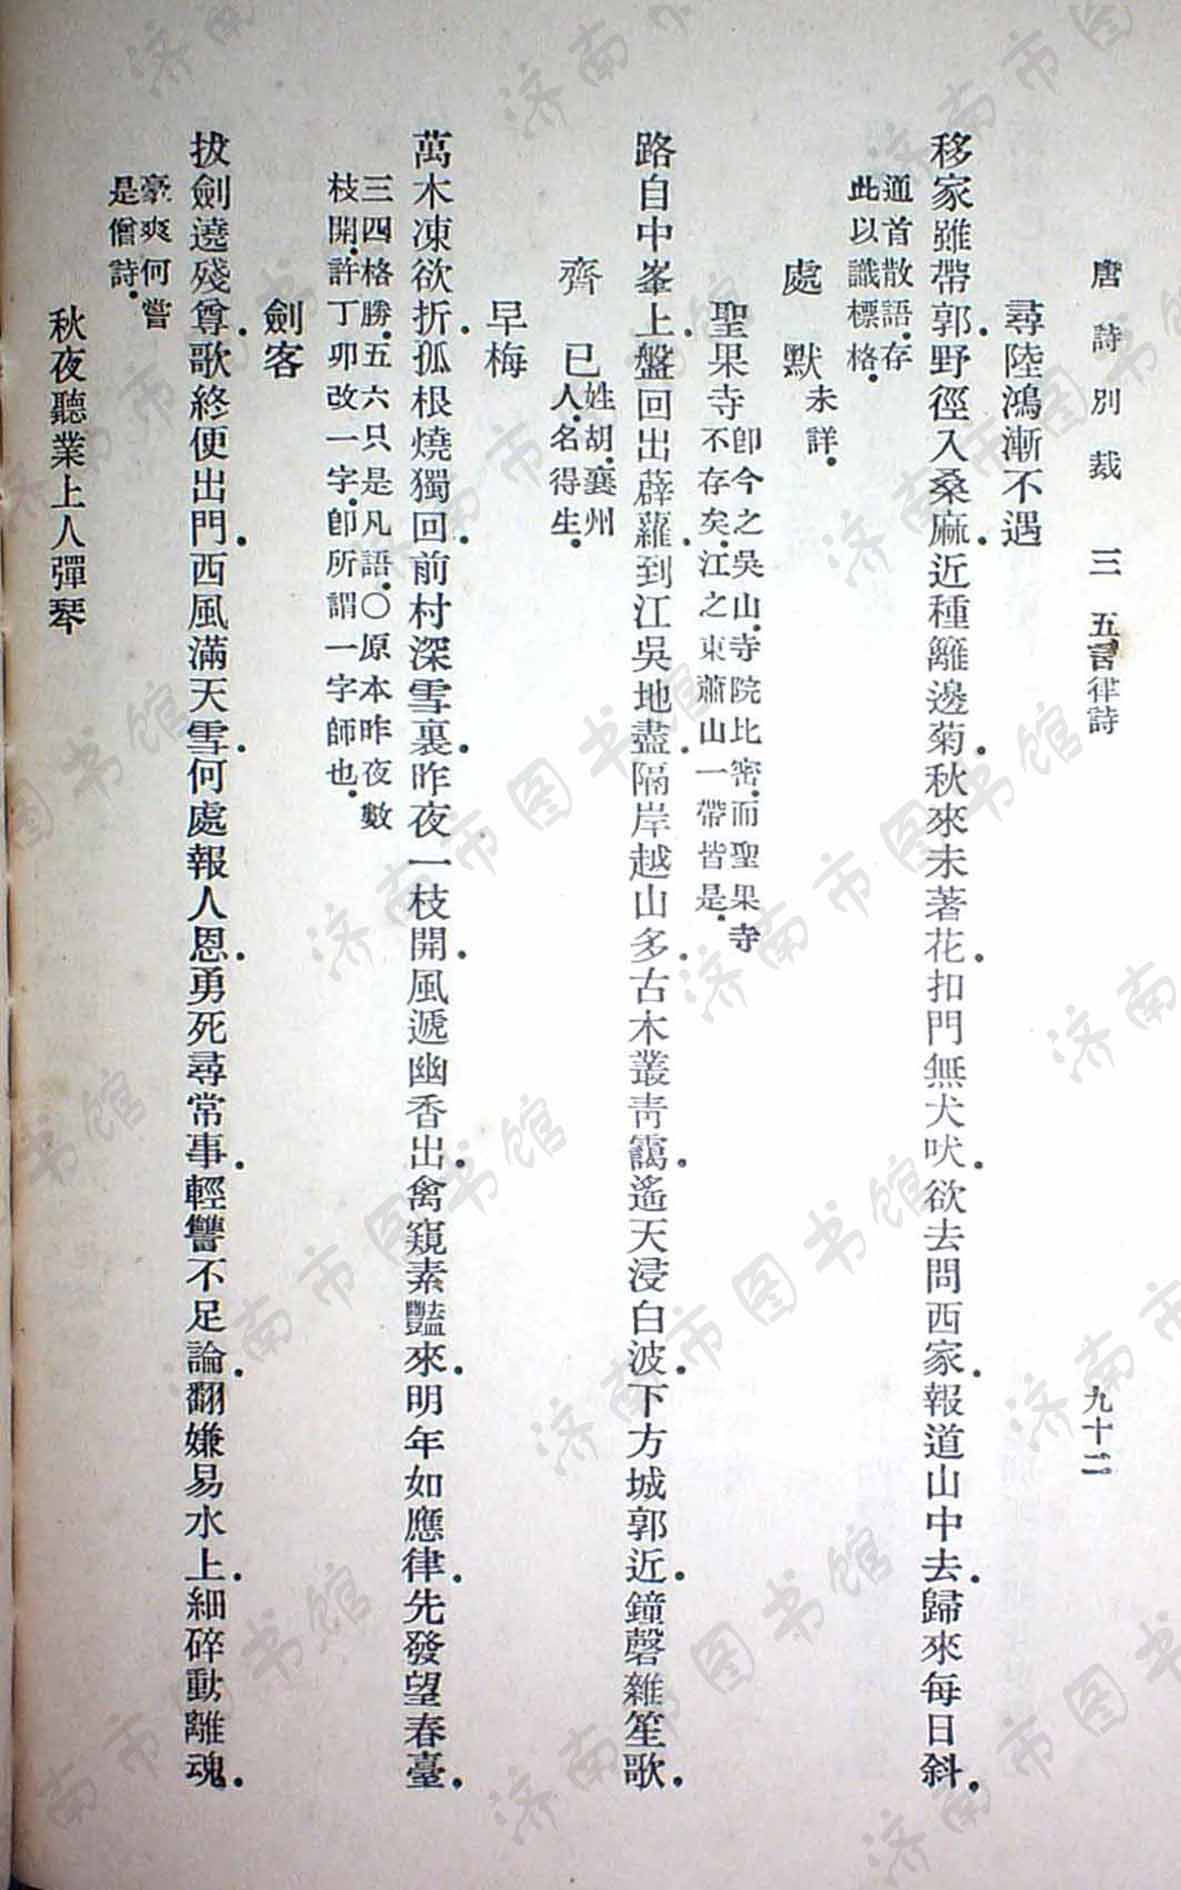 唐詩別裁 三 五言律詩 九十二
尋陸鴻漸不遇
移家雖帶郭.野徑入桑麻.近種籬邊菊.秋來未著花.扣門無犬吠.欲去問西家.報道山中去.歸來每日斜.
通首散語.存
此以識標格.
處默 未詳.
聖果寺 卽今之吳山.寺院比密.而聖果寺
不存矣.江之東蕭山一帶皆是.
路自中峯上.盤回出薜蘿.到江吳地盡.隔岸越山多.古木叢青靄.遙天浸白波.下方城郭近.鐘磬雜笙歌.
齊已 姓胡.襄州
人.名得生.
早梅
萬木凍欲折.孤根燒獨回.前村深雪裏.昨夜一枝開.風遞幽香出.禽窺素豔來.明年如應律.先發望春臺.
三四格勝.五六只是凡語.○原本昨夜數
枝開.許丁卯改一字.卽所謂一字師也.
劍客
拔劍遶殘尊.歌終便出門.西風滿天雪.何處報人恩.勇死尋常事.輕讐不足論.翻嫌易水上.細碎動離魂.
豪爽何嘗
是僧詩.
秋夜聽業上人彈琴
济南市图书馆